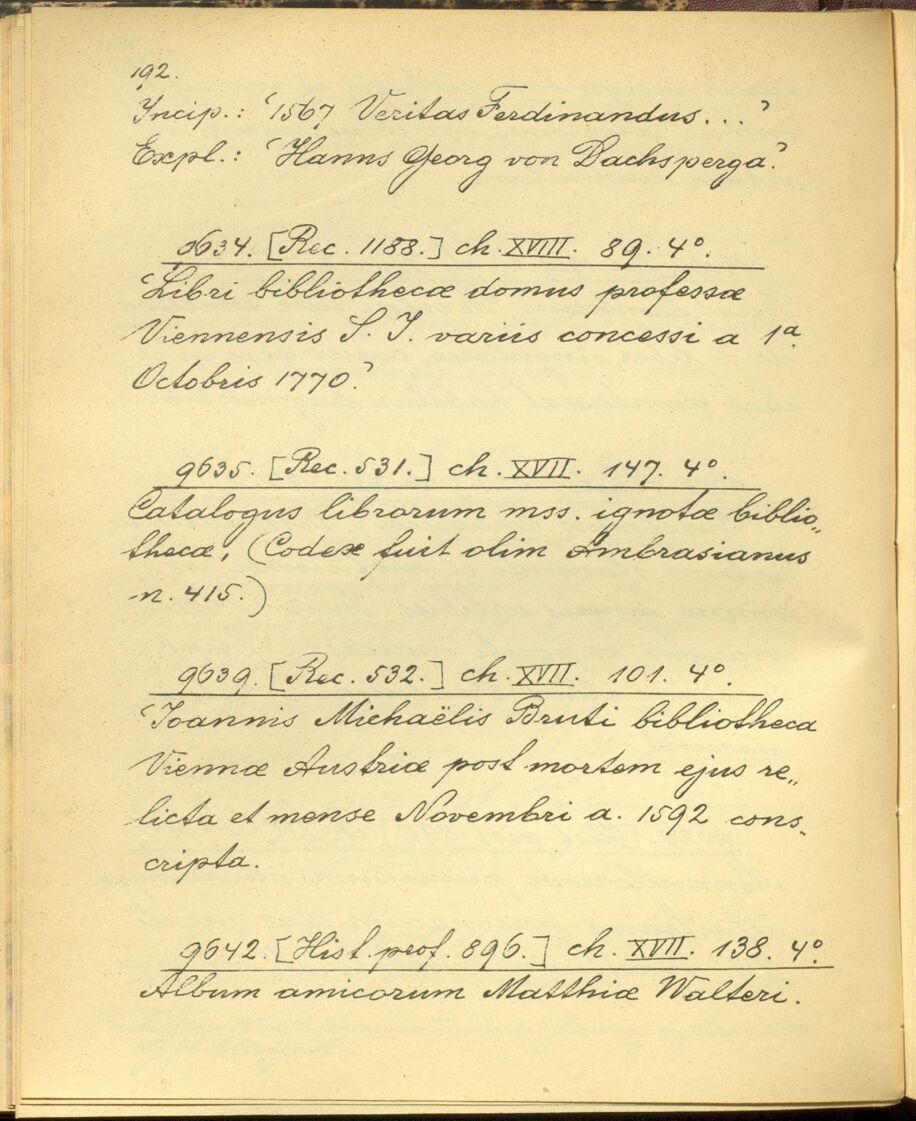 192.
Incip.: '1567 Veritas Ferdinandus...'
Expl.: 'Hanns Georg von Dachsperga'.
9634. [Rec. 1188.] ch. XVIII. 89. 4°.
'Libri bibliothecæ domus professæ
Viennensis S. I. variis concessi a 1ª
Octobris 1770.'
9635. [Rec. 531.] ch. XVII. 147. 4°.
Catalogus librorum mss. ignotæ biblio„
thecæ; (Codex fuit olim Ambrasianus
n. 415.)
9639. [Rec. 532.] ch. XVII. 101. 4°.
'Ioannis Michaëlis Bruti bibliotheca
Viennæ Austriæ post mortem ejus re„
licta et mense Novembri a. 1592 cons„
cripta.
9642. [Hist. prof. 896.] ch. XVII. 138. 4°.
Album amicorum Matthiæ Walteri.